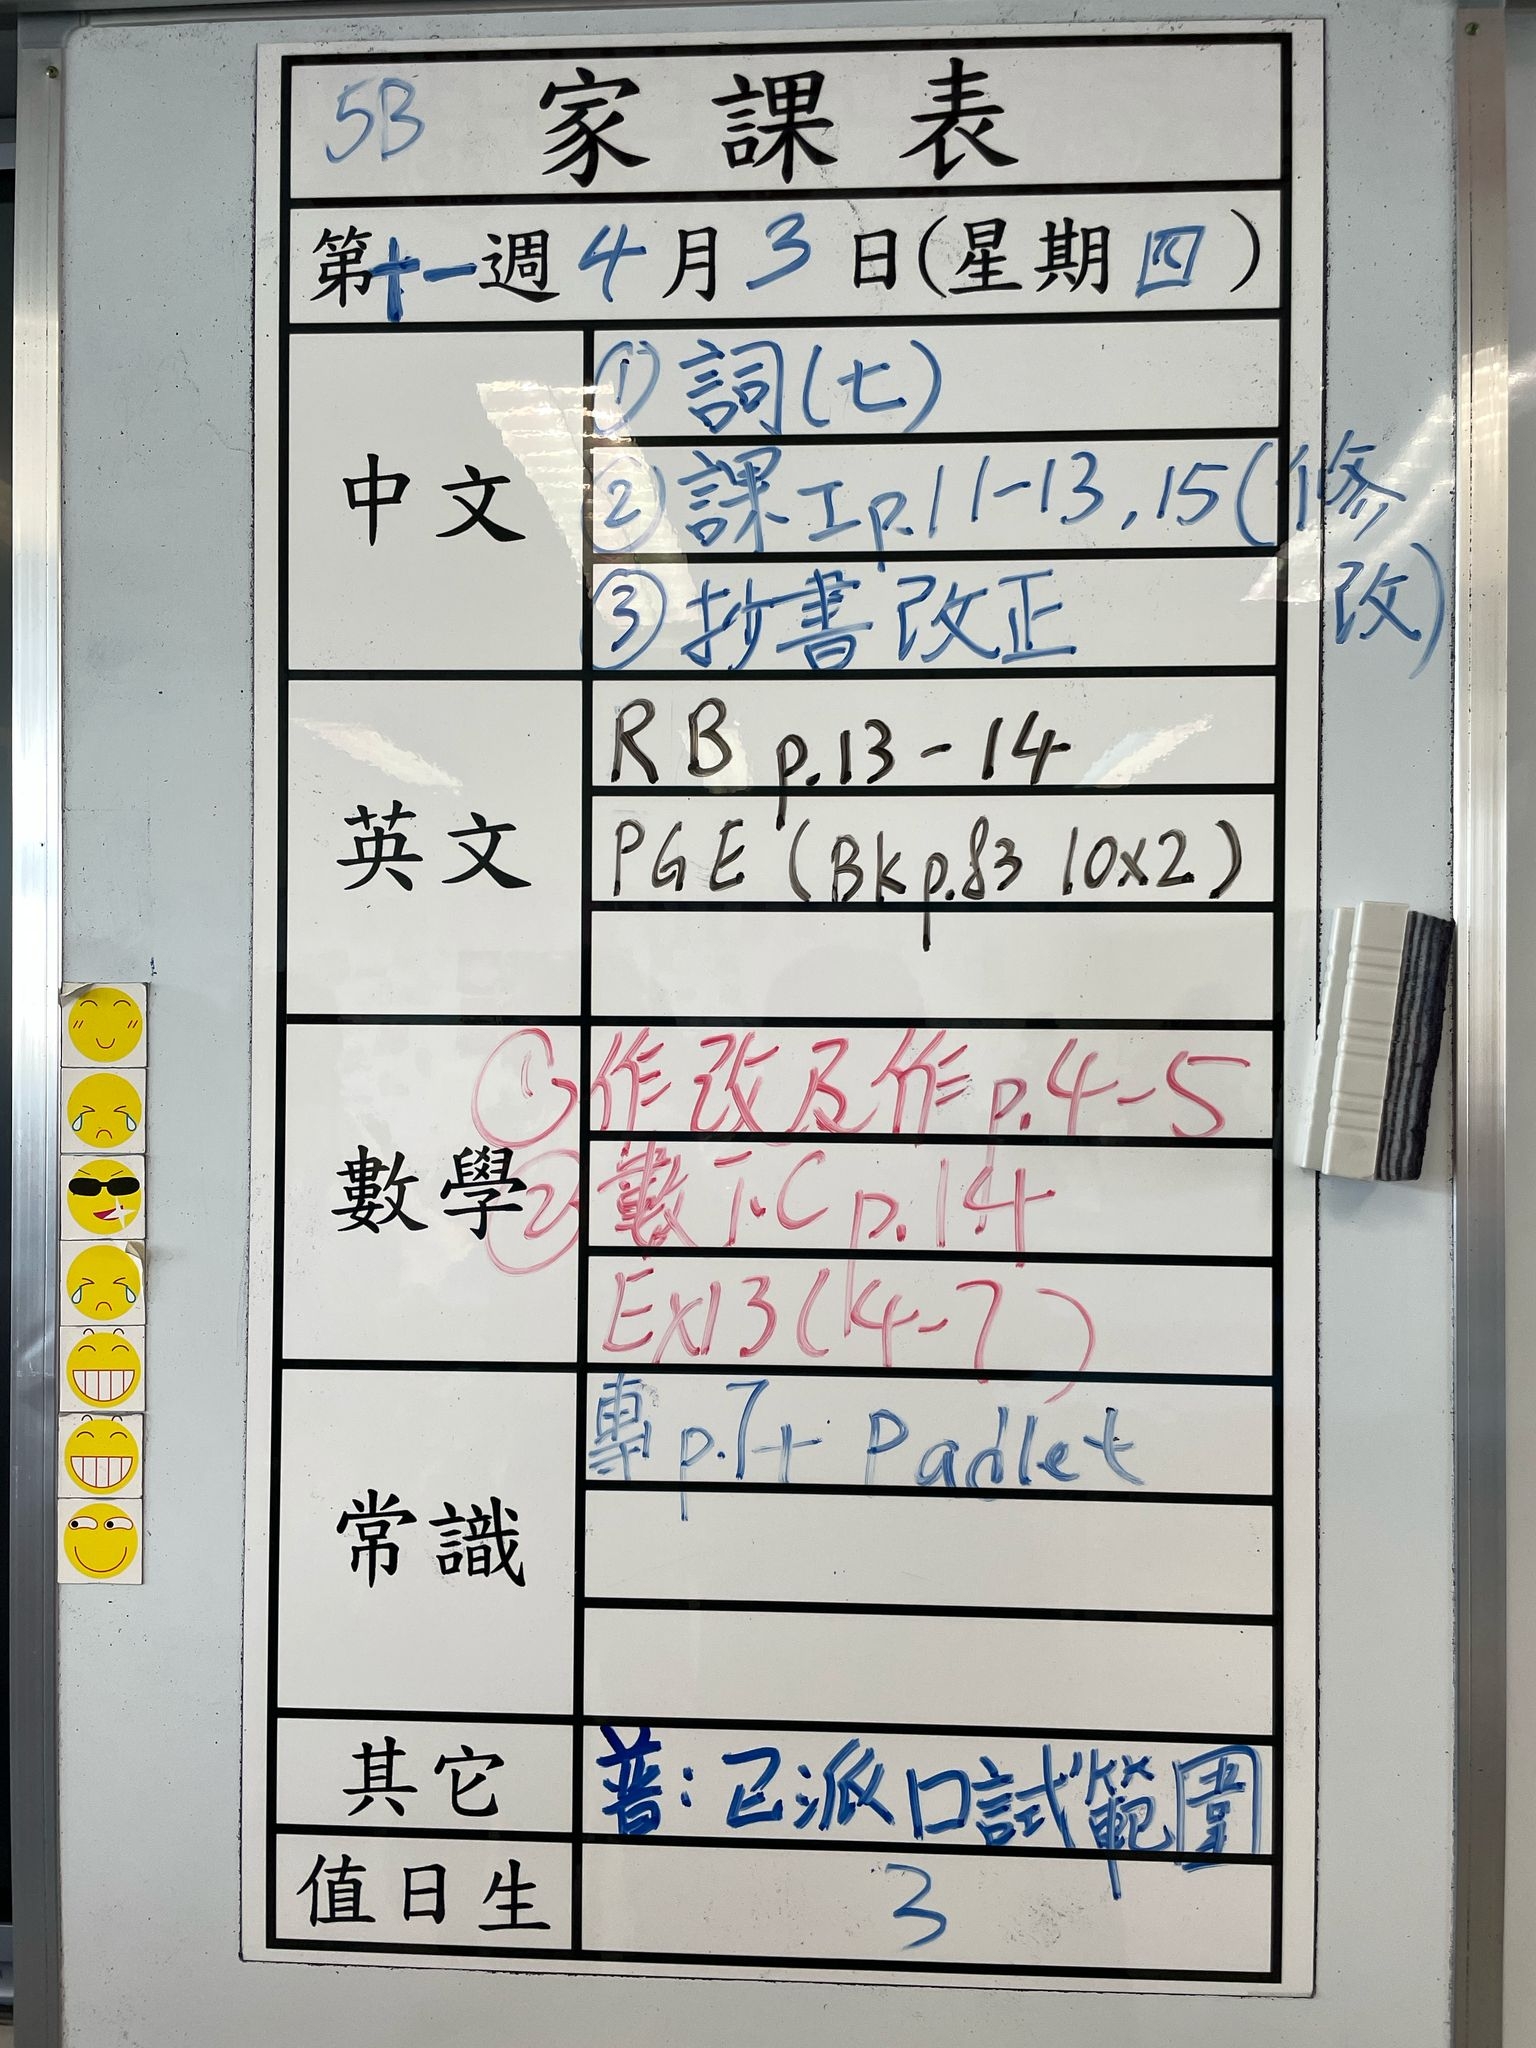 5B 家課表
第十一週 4月3日(星期四)
中文
① 詞(七)
② 課工p.11-13, 15(修改)
③ 抄書改正
英文
RB p.13-14
PGE (BK p.83 10x2)
數學
① 作改及作p.4-5
② 數下C p.14
Ex13(4-7)
常識
專p.7+ Padlet
其它
普:已派口試範圍
值日生
3